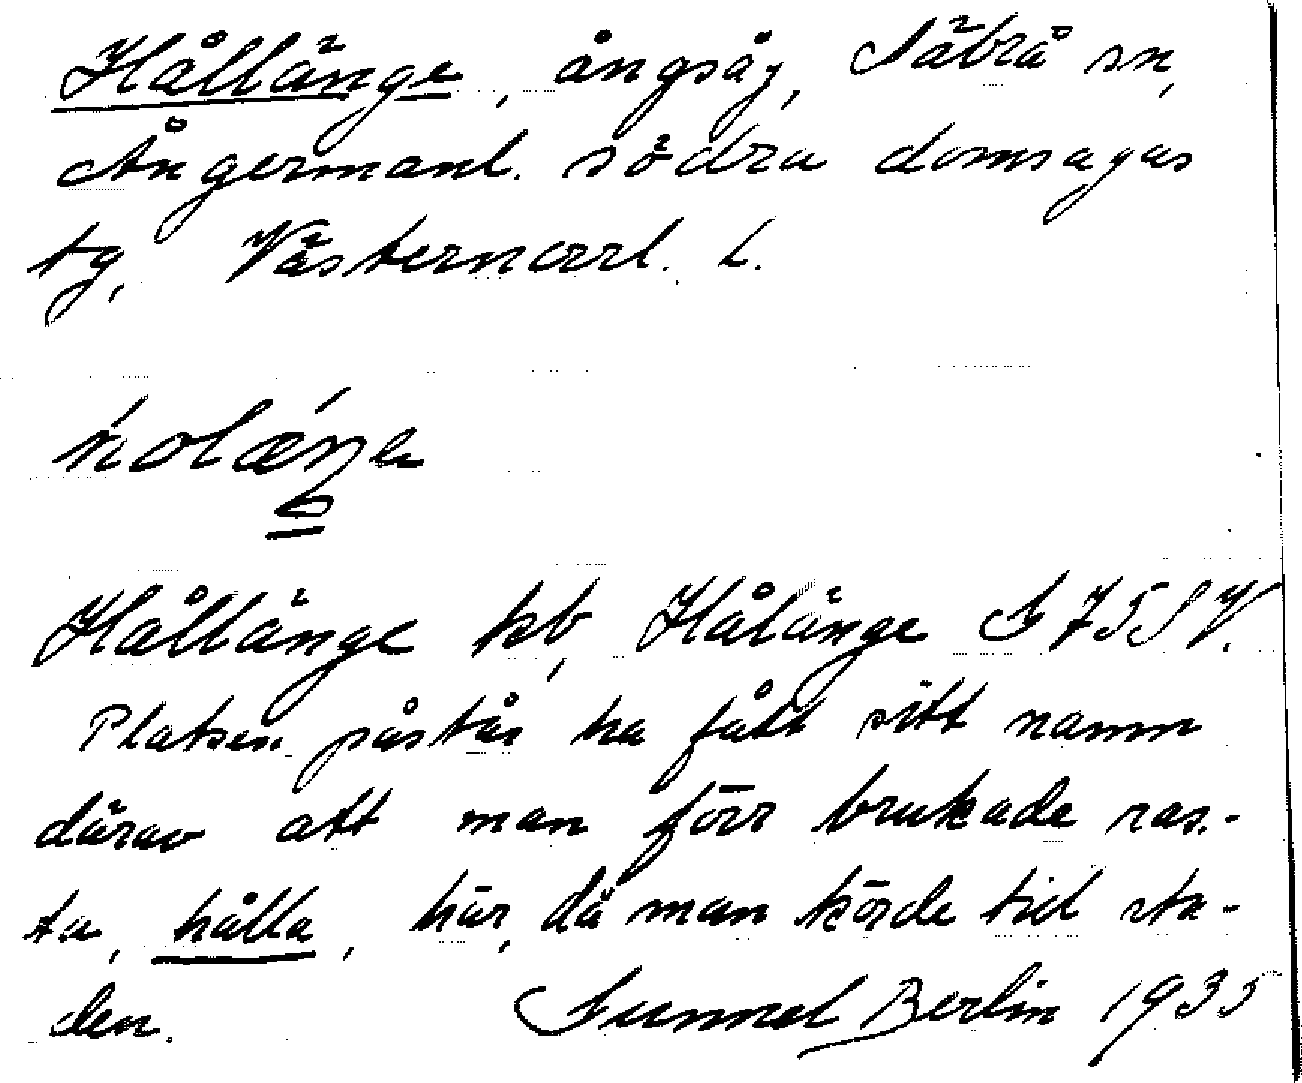 Hållänge, ångsåg, Säbrå sn,
Ångermanl. södra domsagas
tg, Västernorrl. l.
Hållänge kb, Hålänge S 75 SV.
Platsen påstås ha fått sitt namn
därav att man förr brukade ras-
ta, hålla, här, då man körde till sta-
den. Gunnel Berlin 1935